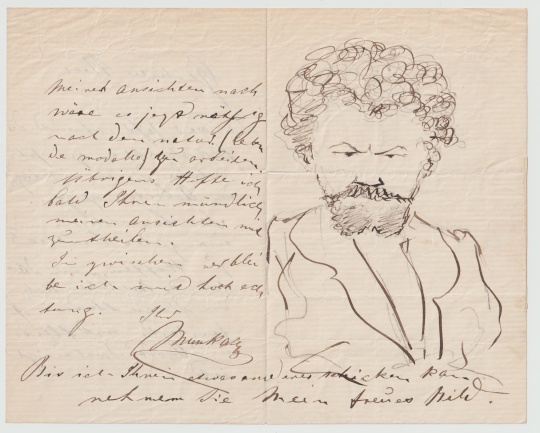 Meinen ansichten nach
wäre es jezt nöthig
nach den natur. (leben
de modelle) zu arbeiten
übrigens Hoffe ich
bald Ihnen mündlich
meinen ansichten mit
zutheilen.
In zwischen verblei
be ich mid hoch ach
tung. Ihr
Munkácsy
Bis ich Ihnen etwas anderes schicken kan
nehmen Sie Mein treues Bild.